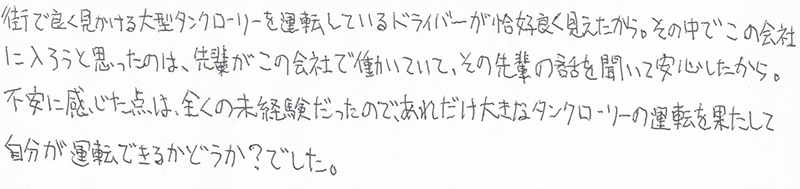 街で良く見かける大型タンクローリーを運転しているドライバーが恰好良く見えたから。その中でこの会社
に入ろうと思ったのは、先輩がこの会社で働いていて、その先輩の話を聞いて安心したから。
不安に感じた点は、全くの未経験だったので、あれだけ大きなタンクローリーの運転を果たして
自分が運転できるかどうか？でした。